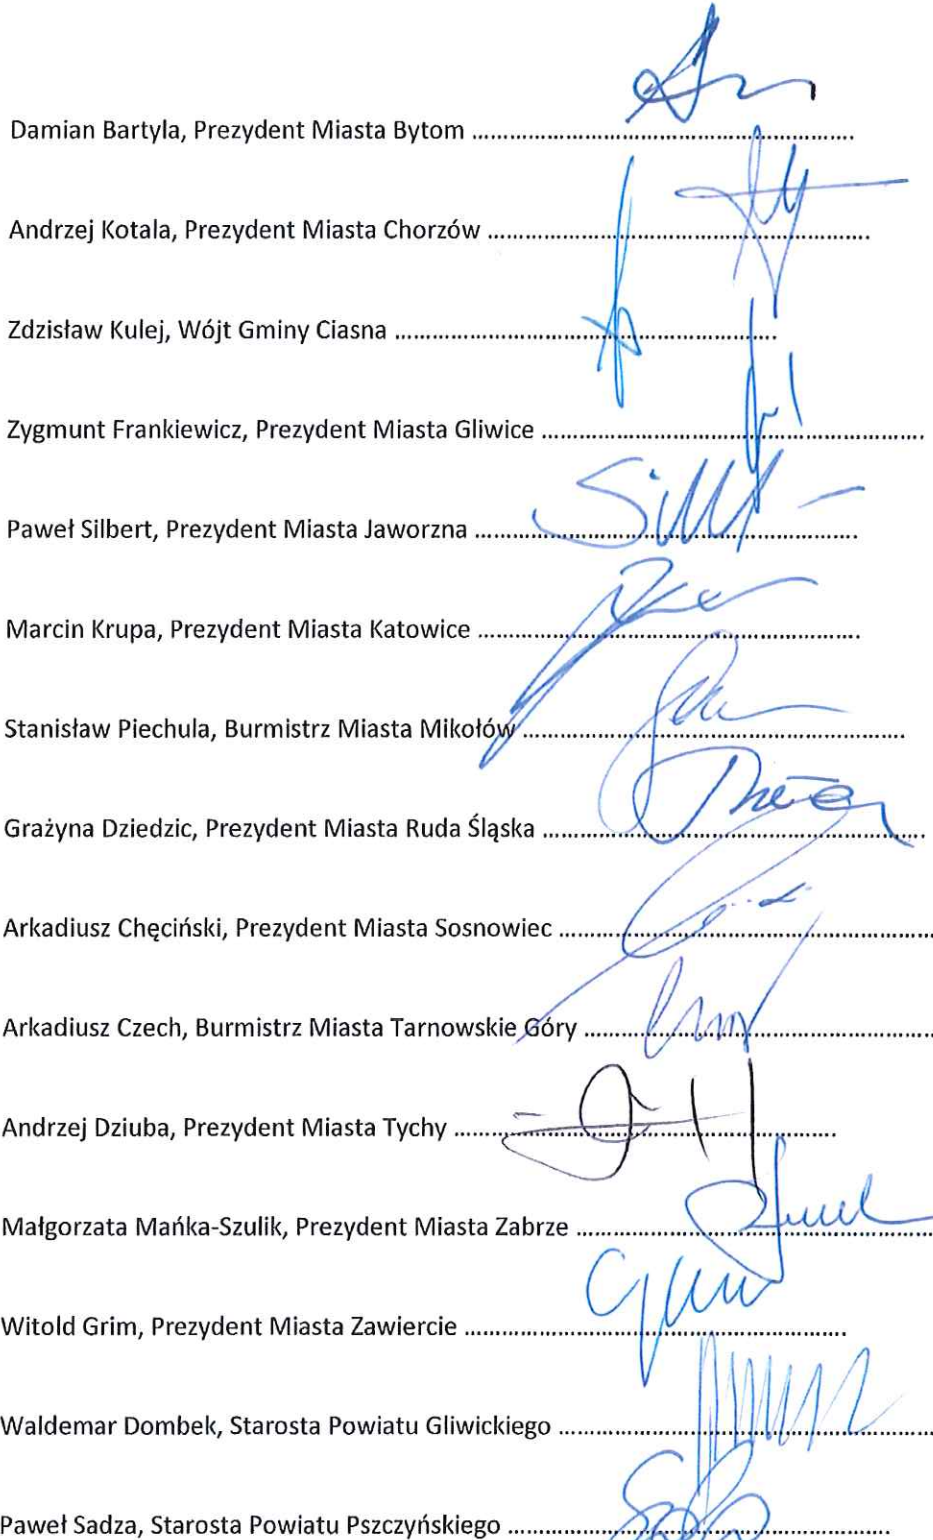 Damian Bartyla, Prezydent Miasta Bytom ................................................................
Andrzej Kotala, Prezydent Miasta Chorzów ................................................................
Zdzisław Kulej, Wójt Gminy Ciasna ................................................................
Zygmunt Frankiewicz, Prezydent Miasta Gliwice ................................................................
Paweł Silbert, Prezydent Miasta Jaworzna ................................................................
Marcin Krupa, Prezydent Miasta Katowice ................................................................
Stanisław Piechula, Burmistrz Miasta Mikołów ................................................................
Grażyna Dziedzic, Prezydent Miasta Ruda Śląska ................................................................
Arkadiusz Chęciński, Prezydent Miasta Sosnowiec ................................................................
Arkadiusz Czech, Burmistrz Miasta Tarnowskie Góry ................................................................
Andrzej Dziuba, Prezydent Miasta Tychy ................................................................
Małgorzata Mańka-Szulik, Prezydent Miasta Zabrze ................................................................
Witold Grim, Prezydent Miasta Zawiercie ................................................................
Waldemar Dombek, Starosta Powiatu Gliwickiego ................................................................
Paweł Sadza, Starosta Powiatu Pszczyńskiego ................................................................